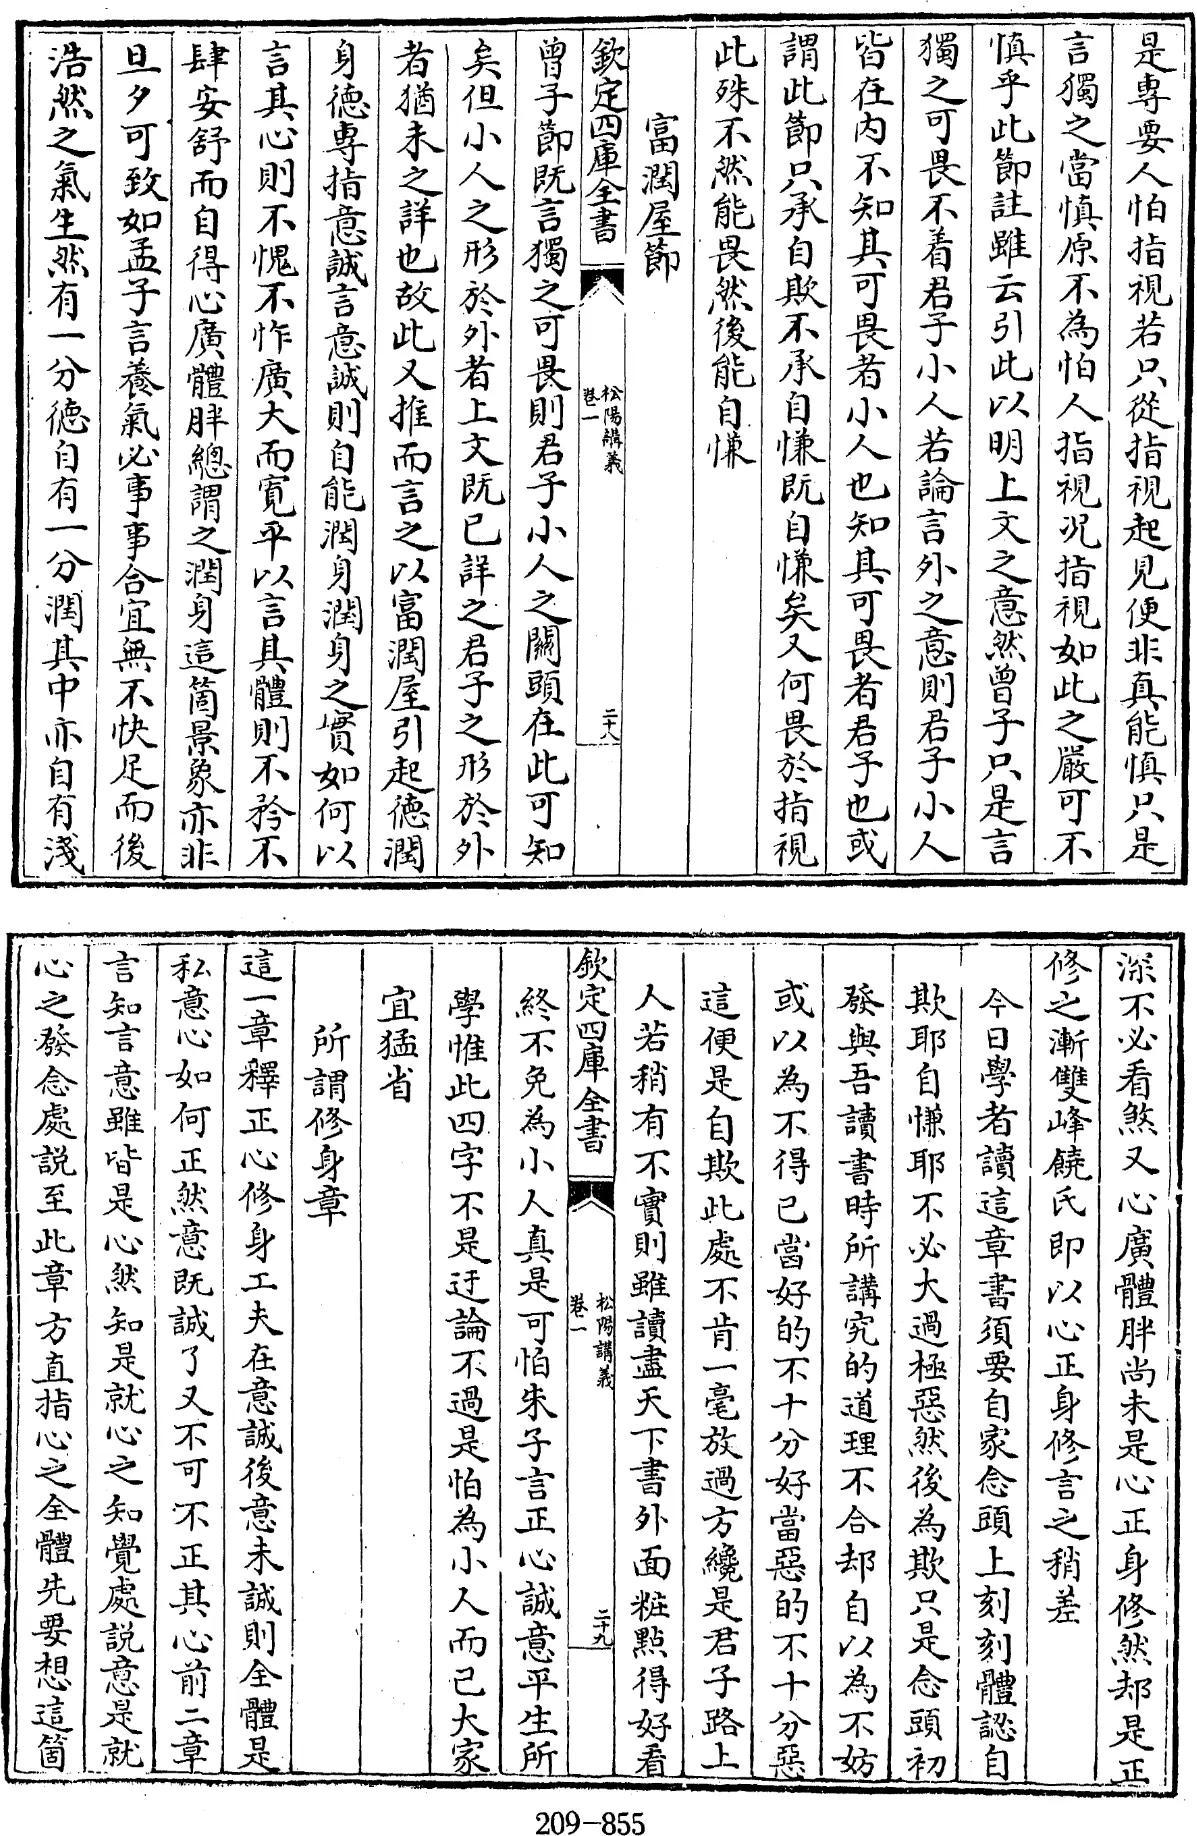 是專要人怕指視若只從指視起見便非真能慎只是
言獨之當慎原不為怕人指視况指視如此之嚴可不
慎乎此節註雖云引此以明上文之意然曾子只是言
獨之可畏不着君子小人若論言外之意則君子小人
皆在内不知其可畏者小人也知其可畏者君子也或
謂此節只承自欺不承自慊既自慊矣又何畏於指視
此殊不然能畏然後能自慊
富潤屋節
欽定四庫全書
松陽講義
卷一
二十八
曾子節既言獨之可畏則君子小人之關頭在此可知
矣但小人之形於外者上文既已詳之君子之形於外
者猶未之詳也故此又推而言之以富潤屋引起德潤
身德專指意誠言意誠則自能潤身潤身之實如何以
言其心則不愧不怍廣大而寛平以言其體則不矜不
肆安舒而自得心廣體胖總謂之潤身這箇景象亦非
旦夕可致如孟子言養氣必事事合宜無不快足而後
浩然之氣生然有一分德自有一分潤其中亦自有淺
深不必看煞又心廣體胖尚未是心正身修然却是正
修之漸雙峰饒氏即以心正身修言之稍差
今日學者讀這章書須要自家念頭上刻刻體認自
欺耶自慊耶不必大過極惡然後為欺只是念頭初
發與吾讀書時所講究的道理不合却自以為不妨
或以為不得已當好的不十分好當惡的不十分惡
這便是自欺此處不肯一毫放過方纔是君子路上
人若稍有不實則雖讀盡天下書外面粧點得好看
欽定四庫全書
松陽講義
卷一
二十九
終不免為小人真是可怕朱子言正心誠意平生所
學惟此四字不是迂論不過是怕為小人而已大家
宜猛省
所謂修身章
這一章釋正心修身工夫在意誠後意未誠則全體是
私意心如何正然意既誠了又不可不正其心前二章
言知言意雖皆是心然知是就心之知覺處説意是就
心之發念處説至此章方直指心之全體先要想這箇
209-855